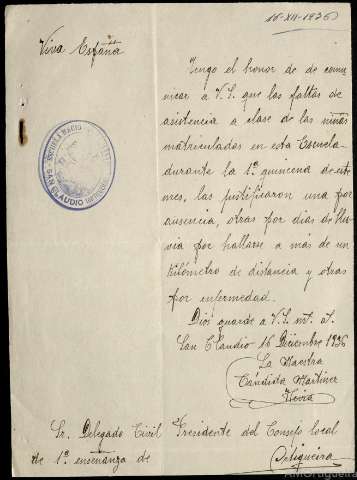 16-XII-1936
Viva España
Tengo el honor de de comu-
nicar a V.S. que las faltas de
asistencia a clase de las niñas
matriculadas en esta Escuela
durante la 1ª quincena de este
mes, las justificaron una por
ausencia, otras por dias de llu-
via por hallarse a más de un
kilómetro de distancia y otras
por enfermedad.
Dios guarde a V.S. m. a.
San Claudio 16 Diciembre 1936
La Maestra
Cándida Martinez
ESCUELA NACIO
SAN CLAUDIO
Sr. Delegado Civil Presidente del Consejo local
de 1ª enseñanza de Ortigueira
AMOrtigueira